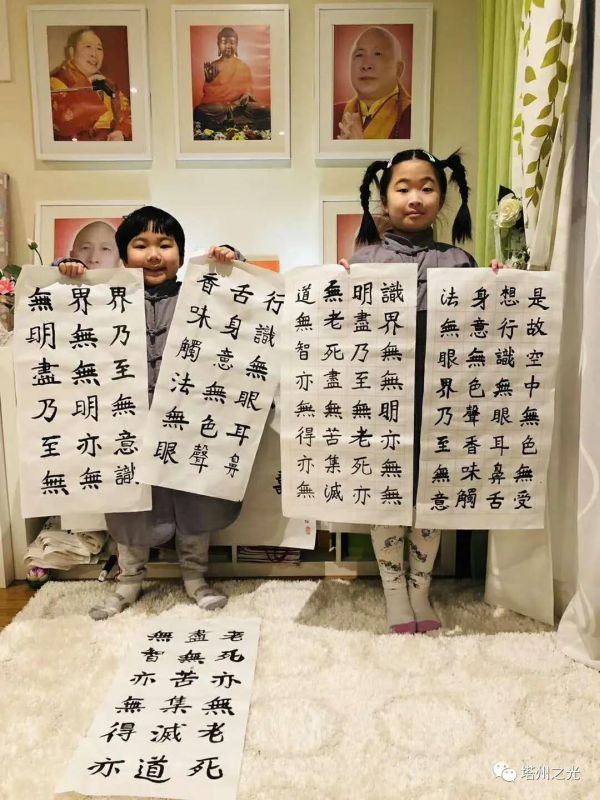 是故空中無色無受
想行識無眼耳鼻舌
身意無色聲香味觸
法無眼界乃至無意
識界無無明亦無無
明盡乃至無老死亦
無老死盡無苦集滅
道無智亦無得亦無
行識無眼耳鼻
舌身意無色聲
香味觸法無眼
界乃至無意識
界無無明亦無
無明盡乃至無
老死亦無老死
盡無苦集滅道
無智亦無得亦
塔州之光